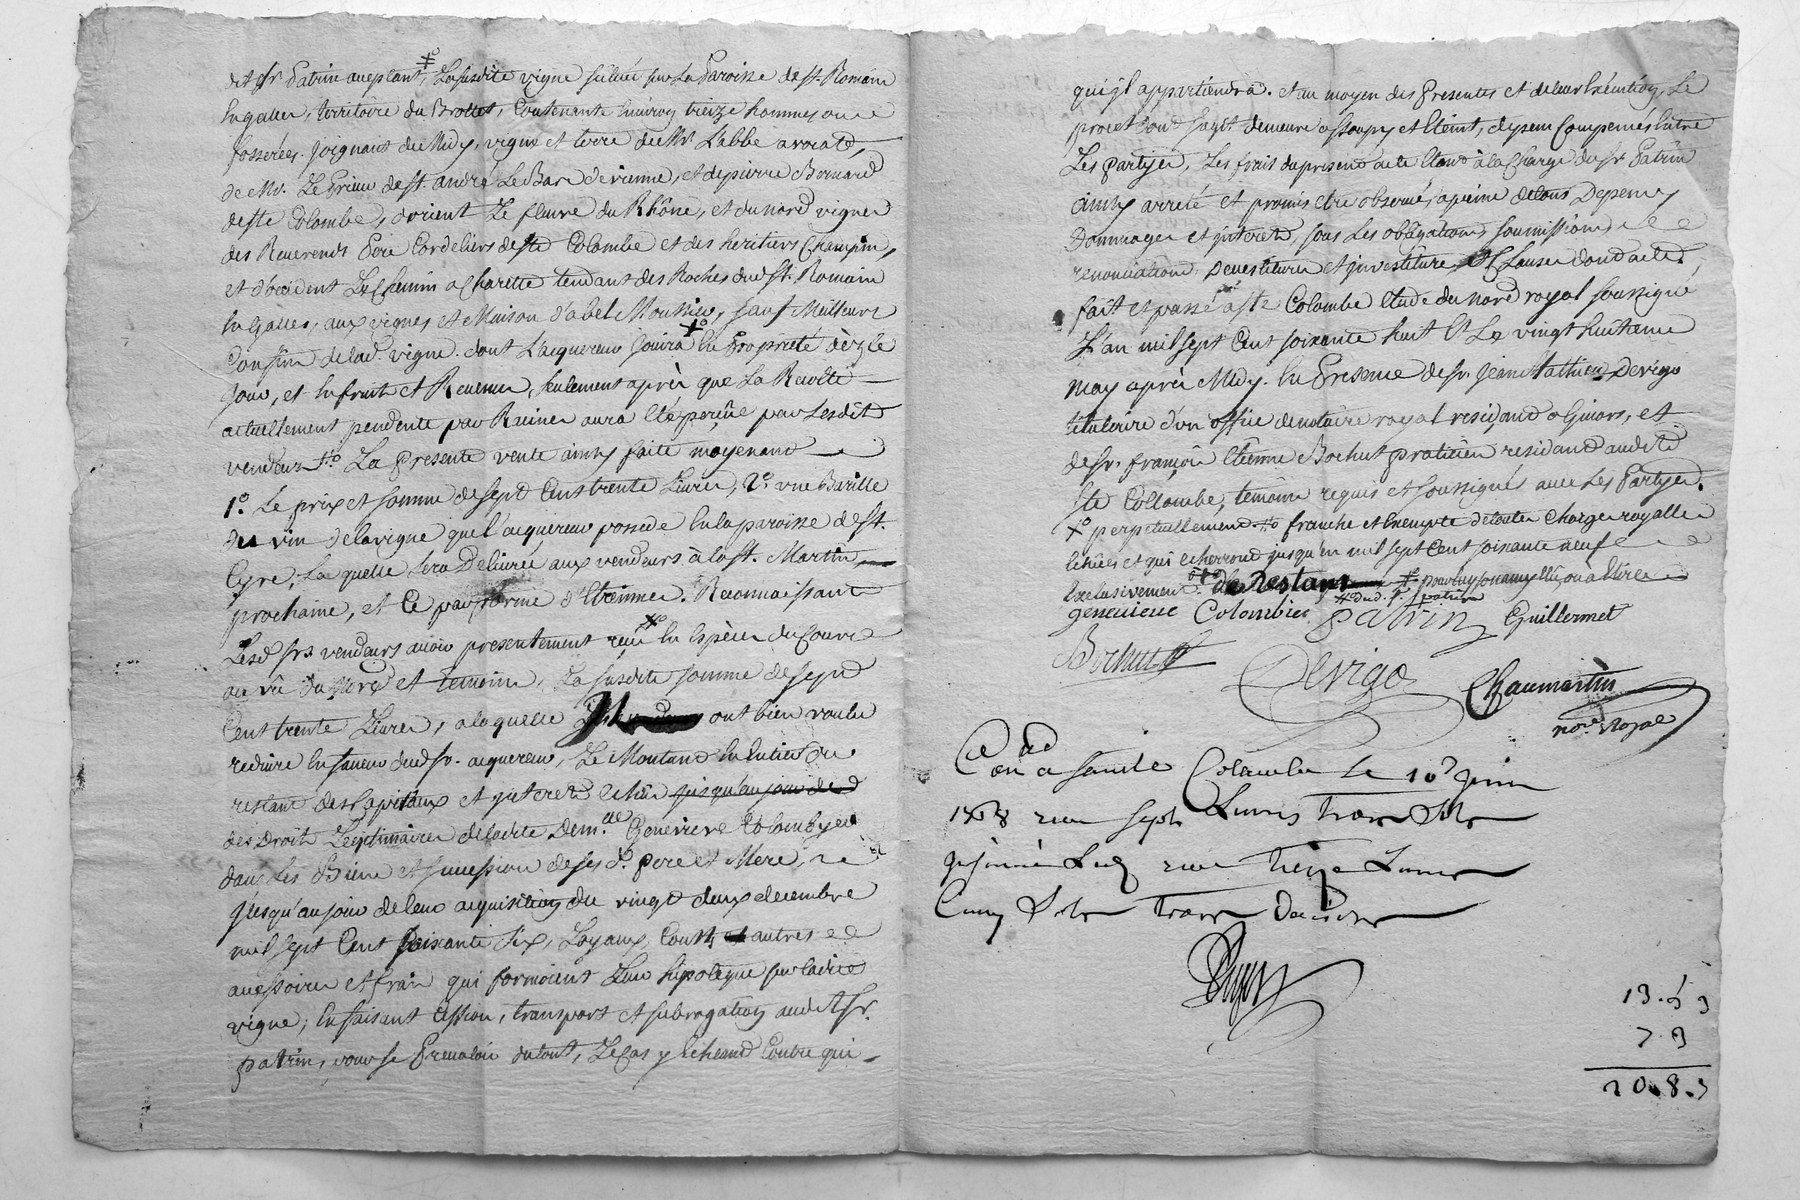 dit Sr. Patrin acceptant, La susdite vigne scituée sur La Paroisse de St. Romain
En galler, territoire du Brottet, Contenante Environ treize hommes ou
fosserées. Joignant du Midy, vigne et terre de Mr. L'abbe avocat,
de Mr. Le Prieur de St. andré Le Bas de vienne, et de pierre Bernard
de ste Colombe, d'orient Le fleuve du Rhône, et du nord vignes
des Reverends Pere Cordeliers de ste Colombe et des heritiers Champin,
et d'occident Le Chemin a Charette tendant des Roches dud. St. Romain
En Galler, aux vignes et Maison d'abel Moussier, sauf Meilleurs
Confins de lad. vigne. dont L'acquereur Jouira En Proprieté dèz le
jour, et En fruits et Revenus, seulement après que La Recolte
actuellement pendente par Racines aura été perçüe par Lesdits
vendeurs La Presente vente ainsy faite moyenant
1°. Le prix et somme de sept Cens trente Livres, 2°. une Barille
du vin de la vigne que l'acquereur possede En la paroisse de St.
Cyre, La quelle sera Delivrée aux vendeurs à la St. Martin
prochaine, et Ce par forme d'Etrennes. Reconnaissant
Lesd. Srs vendeurs avoir presentement reçu En Espèces du Cours
au vû du Nore et temoins, La susdite somme de sept
Cent trente Livres, a la quelle ont bien voulu
reduire En faveur dud. Sr. acquereur, Le Montant En Entier du
restant des Capitaux et interets Echus jusqu'au jour de
des Droits Legitimaires de ladite Demlle Genevieve Colombier
dans Les Biens et succession de ses d. pere et Mere,
Jusqu'au jour de leur acquisition du vingt deux decembre
mil sept Cent soixante six, Loyaux Couts et autres
accessoires et frais qui formoient Leur hipoteque sur ladite
vigne; En faisant Cession, transport et subrogation audit Sr.
Patrin, pour se Prevaloir du tout, Le Cas y Echeant Contre qui
qu'il appartiendra. et au moyen des Presentes et de leur Exécution, Le
procet dont s'agit demeure assoupy et Eteint, dépens Compensés Entre
Les parties, Les frais du present acte Etant à la Charge du Sr. Patrin
ainsy arrêté et promis être observé, a peine de tous Depens,
Dommages et interets, sous Les obligations, soumissions
renonciations, Devestitures et investitures, Et Clauses dont acte,
fait et passé à Ste Colombe Etude du nore royal soussigné
L'an mil sept Cent soixante huit Et Le vingt huitieme
may après Midy. En Presence de Sr. Jean Mathieu Devigo
titulaire d'un office de notaire royal residant a Givors, et
de Sr. françois Etienne Bochut praticien residant audit
Ste Collombe, témoins requis et soussignés avec Les Parties.
perpetuellement franche et Exempte de toutes Charges royalles
Echües et qui echerront jusqu'en mil sept Cent soixante neuf
Exclusivement. de Restant pour luy son amy Elû ou à Elire
dud. Sr. patrin
genevieve Colombier Patrin Guillermet
Bochut Devigo Chaumartin
nore Royal
Con a sainte Colombe Le 10 Juin
1768 reçu sept Livres trois sols
trois deniers
13.5 3
7.3
20.8.3